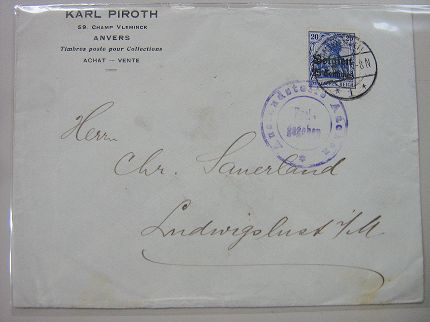 KARL PIROTH
59. CHAMP VLEMINCK
ANVERS
Timbres poste pour Collections
ACHAT — VENTE
20 20
Belgien
8-N
Aachen
Herrn
Chr. Sauerland
Ludwigslust i/M